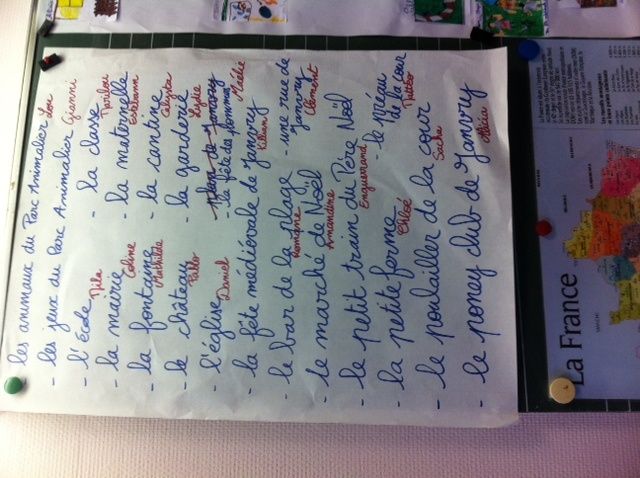 les animaux du Parc Animalier Lou
- les jeux du Parc Animalier Gianni
- l'école Djila - la classe Marilou
- la mairie Coline - la maternelle Estebann
- la fontaine Mathilde - la cantine Calypta
- le château Pablo - la garderie Lylie
- l'église Daniel - la fête des pommes Maélie
- la fête médiévale de Janvry Kilian
- le bar de la plage Romane - une rue de Janvry Clément
- le marché de Noël Amandine
- le petit train du Père Noël Enguerrand
- la petite ferme Chloé - le préau de la cour Matteo
- le poulailler de la cour Sacha
- le poney club de Janvry Alicia
La France